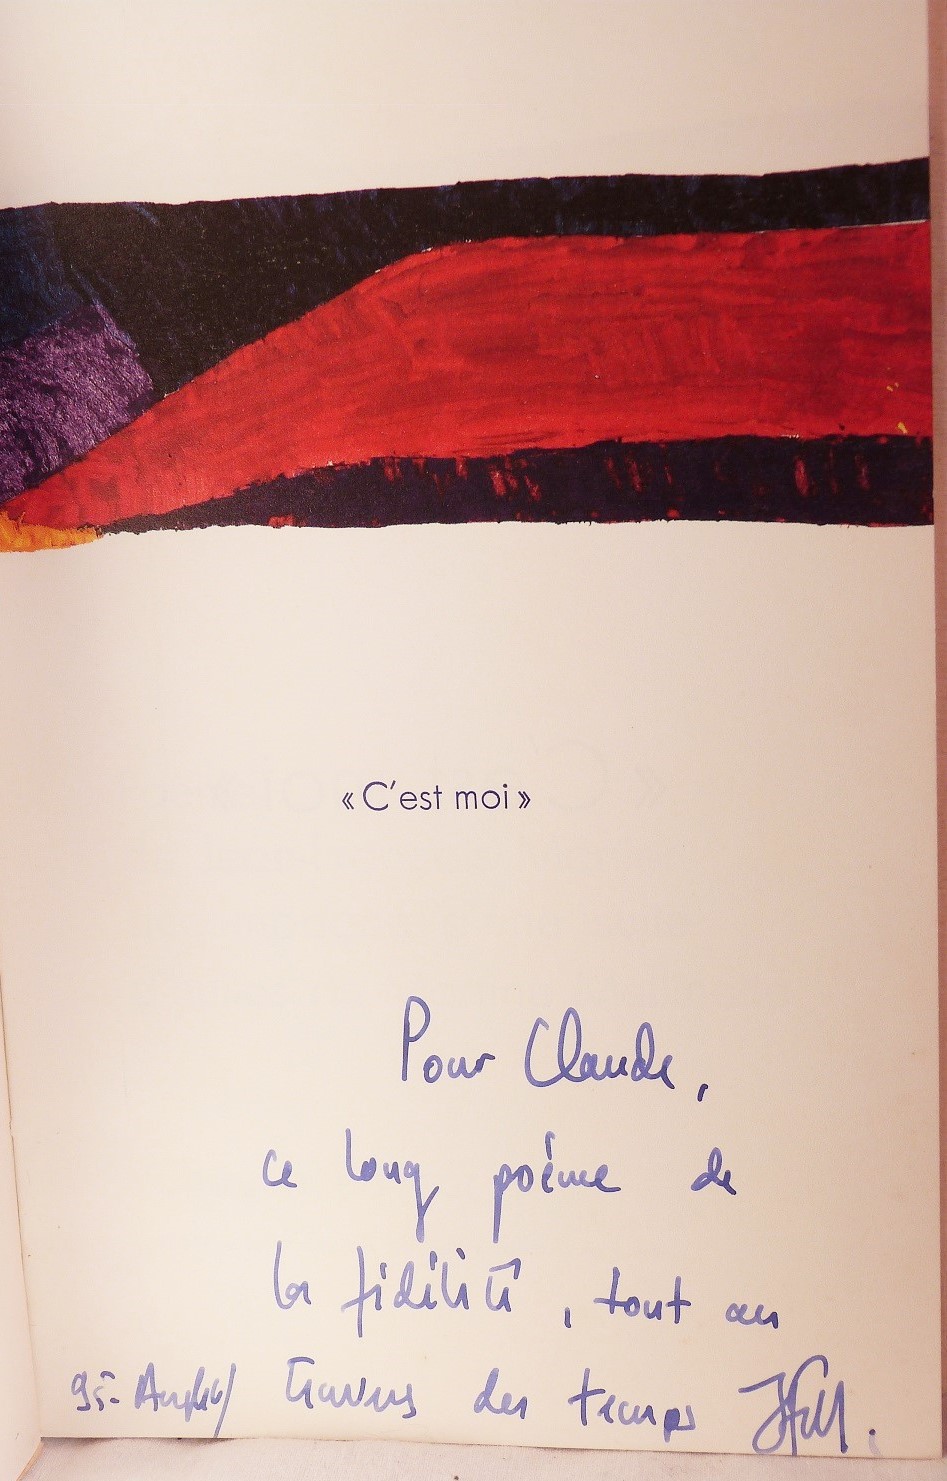 « C'est moi »
Pour Claude,
ce long poème de
la fidélité, tout au
travers des temps